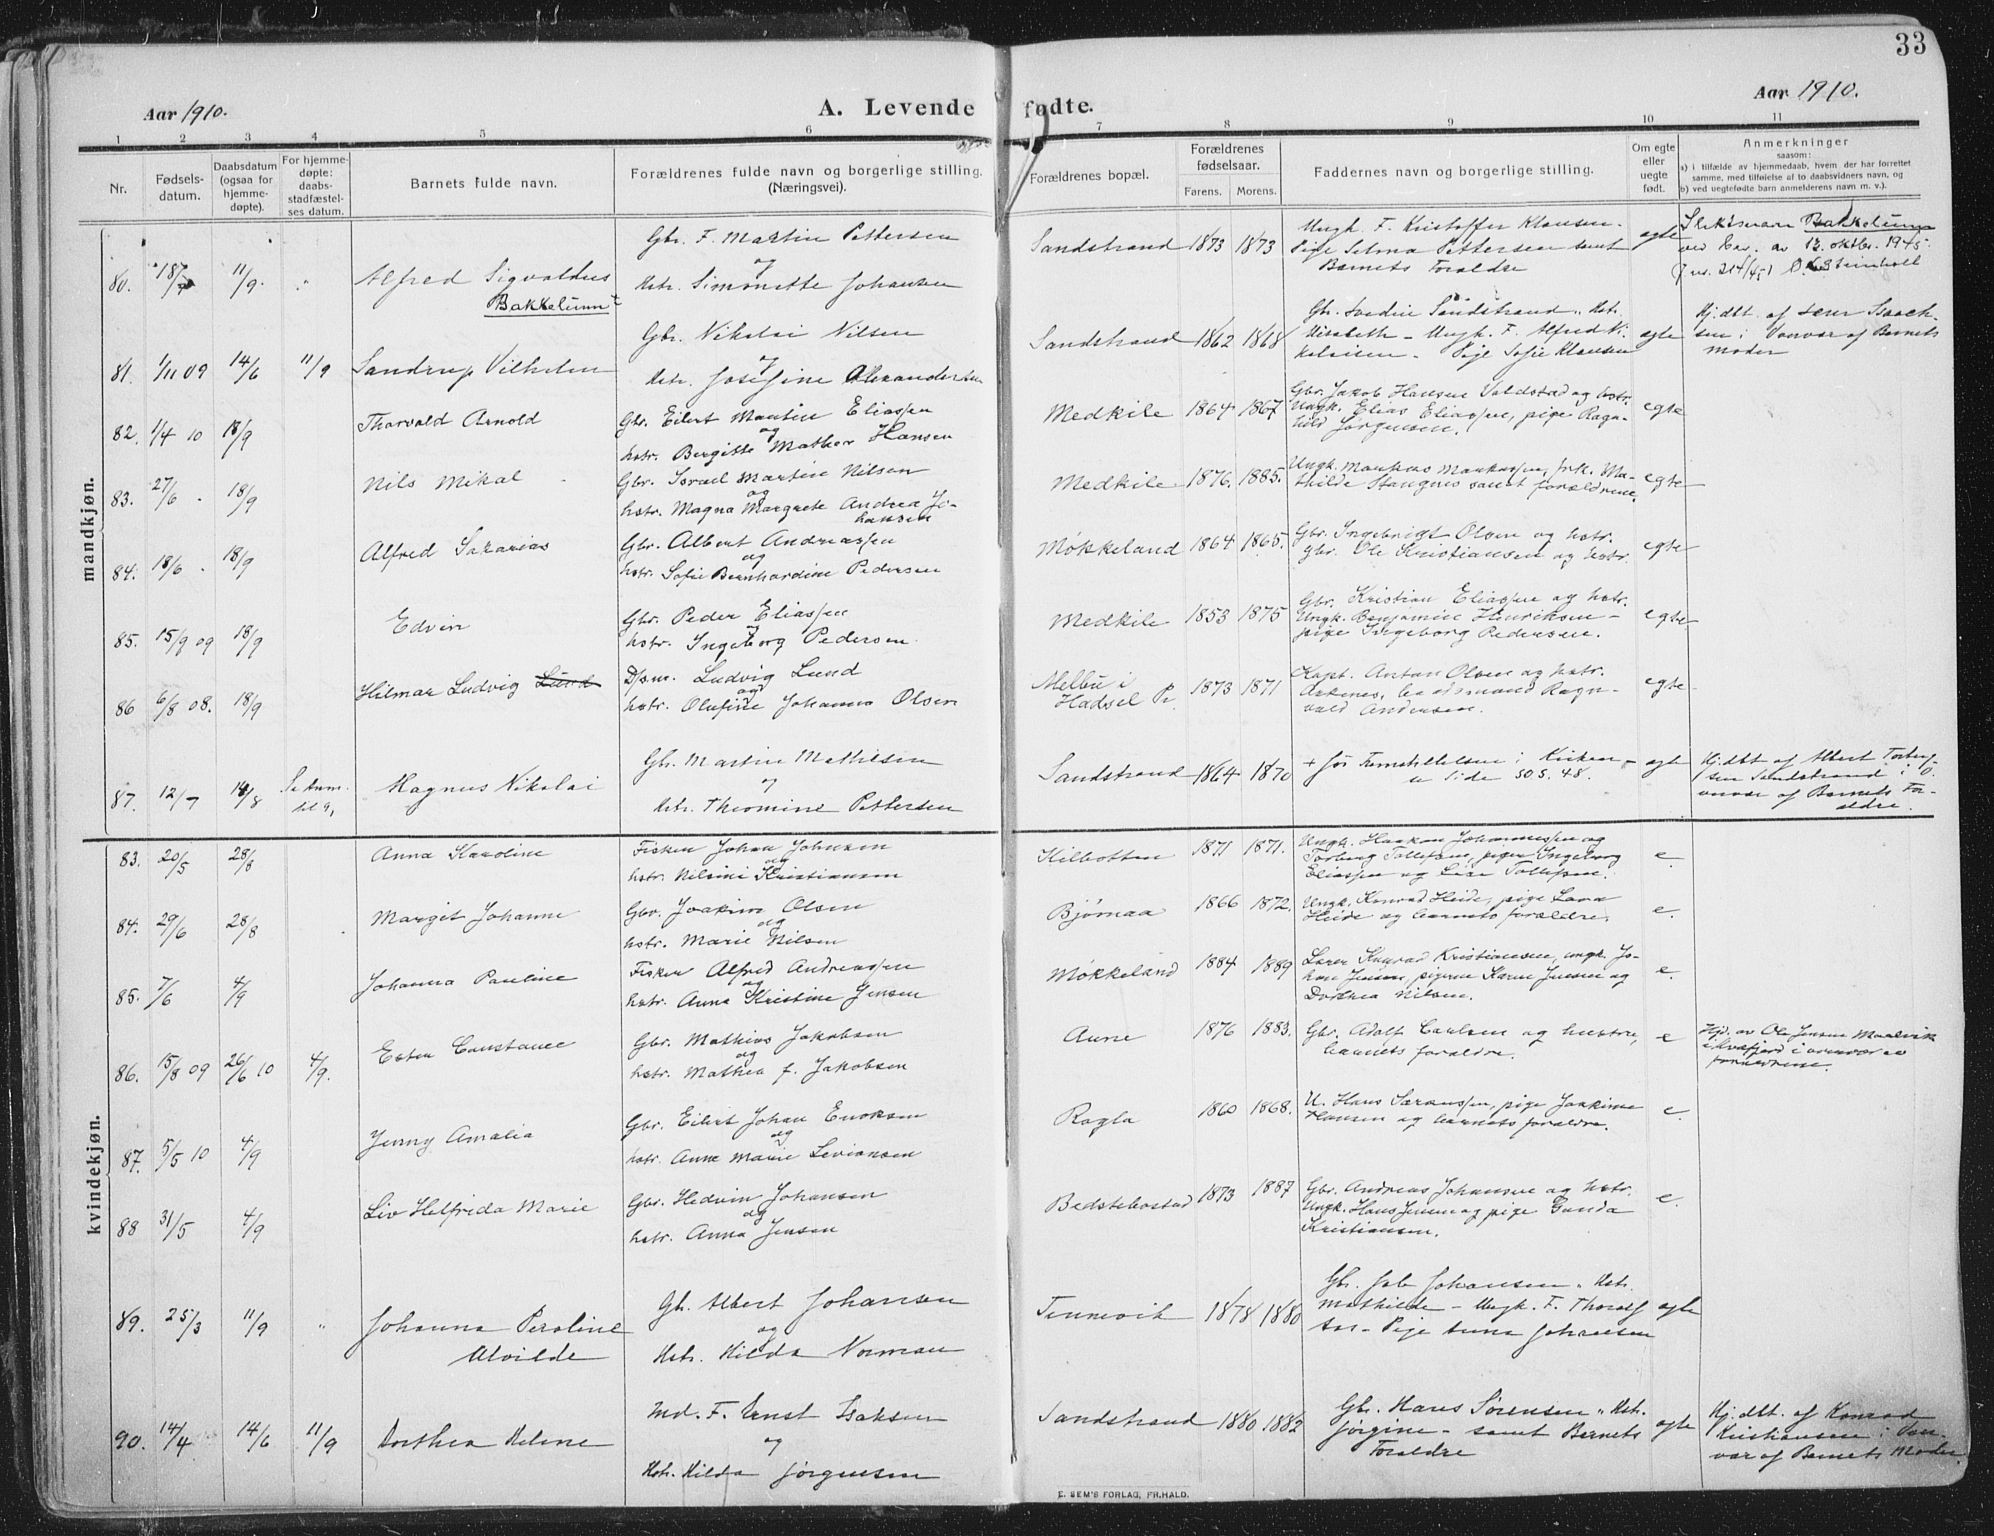 33
Aar 1910.
A. Levende fødte.
Aar 1910.
1 2 3 4 5 6 7 8 9 10 11
Nr.
Fødsels-
datum.
Daabsdatum
(ogsaa for
hjemme-
døpte).
For hjemme-
døpte:
daabs-
stadfæstel-
ses datum.
Barnets fulde navn.
Forældrenes fulde navn og borgerlige stilling.
(Næringsvei).
Forældrenes bopæl.
Forældrenes
fødselsaar.
Farens. Morens.
Faddernes navn og borgerlige stilling.
Om egte
eller
uegte
født.
Anmerkninger
saasom:
a) i tilfælde av hjemmedaab, hvem der har forrettet
samme, med tilføielse af to daabsvidners navn, og
b) ved uegtefødte barn anmelderens navn m. v.).
mandkjøn.
80. 18/7 11/9 " Alfred Sigvaldus
Bakkelunn
Gbr. F. Martin Pettersen
og
Hstr. Simonette Johansen
Sandstrand 1873 1873
Ungk. F. Kristoffer Klausen -
Pige Selma Pettersen samt
Barnets Foraldre
egte
Slektsnavn Bakkelunn
ved bev. av 12. oktbr. 1945.
81. 1/11 09 14/6 11/9 Sandrup Vilhelm
Gbr. Nikolai Nilsen
og
Hstr. Josefine Alexandersen
Sandstrand 1862 1868
Gbr. Sandstrand " Hst.
Elisabeth - Ungk. F. Alfred Ni-
kolaisen - Pige Sofie Klausen
egte
Hj.dbt. af Jens Isach-
sen i Ovrvar af Barnets
Moder
82. 1/4 10 18/9 Thorvald Arnold
Gbr. Eilert Martin Eliassen
og
hstr. Bergitte Mathea Hansen
Medkile 1864 1867
Gbr. Jakob Hansen Valdstad og hstr.
Ungk. Elias Eliassen, pige Ragn-
hild Jørgensen.
egte
83. 27/6 - 18/9 Nils Mikal
Gbr. Israel Martin Nilsen
og
hstr. Magna Margrete Andrea Jo-
hansen
Medkile 1876. 1885.
Ungk. Markus Markussen, frk. Ma-
thilde Stangnes samt forældrene.
egte
84. 18/6 - 18/9 Alfred Sakarias
Gbr. Albert Andreassen
og
hstr. Sofie Bernhardine Pedersen
Møkkeland 1864 1865.
Gbr. Ingebrigt Olsen og hstr.
gbr. Ole Kristiansen og hstr.
egte
85. 15/9 09 18/9 Edvin
Gbr. Peder Eliassen
og
hstr. Ingeborg Pedersen.
Medkile 1853 1875
Gbr. Kristian Eliassen og hstr.
Ungk. Benjamin Henriksen -
pige Ingeborg Pedersen.
egte
86 6/8 08. 18/9 Hilmar Ludvig Lund
D/s.m. Ludvig Lund
og
hstr. Olufine Johanna Olsen
Melbu i
Hadsel Pr. 1873 1871
Kapt. Anton Olsen og hstr.
Ragn-
vald Andersen.
egte
87. 12/7 14/8 Magnus Nikolai
Gbr. Martin Mathisen
og
Hstr. Theomine Pettersen
Sandstrand 1864 1870
+ før Fremstillelsen i Kirken -
Side 50 S. 48.
egte
Hj.dbt af Albert Torberg-
sen Sandstrand i O-
vervær af Barnets For-
ældre.
kvindekjøn.
83. 20/5 28/8 Anna Karoline
Fisker Johan Johnsen
og
hstr. Nilsine Kristiansen
Kilbotten 1871 1871.
Ungk. Haakon Johannessen og
Torberg Tollefsen, piger Ingeborg
Eliassen og Lise Tollefsen.
e.
84. 29/6 28/8 Margit Johanne
Gbr. Joakim Olsen
og
hstr. Marie Nilsen
Bjørnaa 1866 1872.
Ungk. Konrad Heide, pige Lava
Heide og barnets forældre.
e.
85. 7/6 4/9 Johanna Pauline
Fisker Alfred Andreassen
og
hstr. Anna Kristine Jensen
Møkkeland 1884 1889
Lærer Konrad Kristiansen, ungk. Jo-
han Jensen, pigerne Karen Jensen og
Dorthea Nilsen.
e.
86. 15/8 09 26/6 10 4/9. Ester Constance
Gbr. Mathias Jakobsen
og
hstr. Mathea f. Jakobsen
Aune 1876 1883.
Gbr. Adolf Carlsen og hustru,
barnets forældre.
e
Hjd. av Ole Jensen Maarvik
i Kvæfjord i overvær av
forældrene.
87. 5/5 10 4/9 Jenny Amalia
Gbr. Eilert Johan Enoksen
og
hstr. Anne Marie Levionsen
Rogla 1860 1868.
U. Hans Sørenssen, pige Joakime
Hansen og barnets forældre.
e
88 31/5 4/9 Liv Helfrida Marie
Gbr. Hedvin Johansen
og
hstr. Anna Jensen
Bedstebostad 1873 1887
Gbr. Andreas Johansen og hstr.
Ungk. Hans Jensen og pige Gunda
Kristiansen.
e.
89. 25/3 11/9 " Johanna Peroline
Alvilde
Gbr. Albert Johansen
og
Hstr. Hilda Norman
Tennevik 1878 1880
Gbr. Job Johansen " Hst.
Mathilde - Ungk. F. Thoralf
- Pige Anna Johansen
egte
90. 14/4 14/6 11/9 Dorthea Helene
Ind. F. Ernst Isaksen
og
Hstr. Hilda Jørgensen
Sandstrand 1880 1882
Gbr. Hans Sørensen " Hst.
Jørgine - samt Barnets
Foraldre
egte
Hj.dbt. af Konrad
Kristiansen i Over-
vær af Barnets Moder.
E. SEM'S FORLAG, FR.HALD.